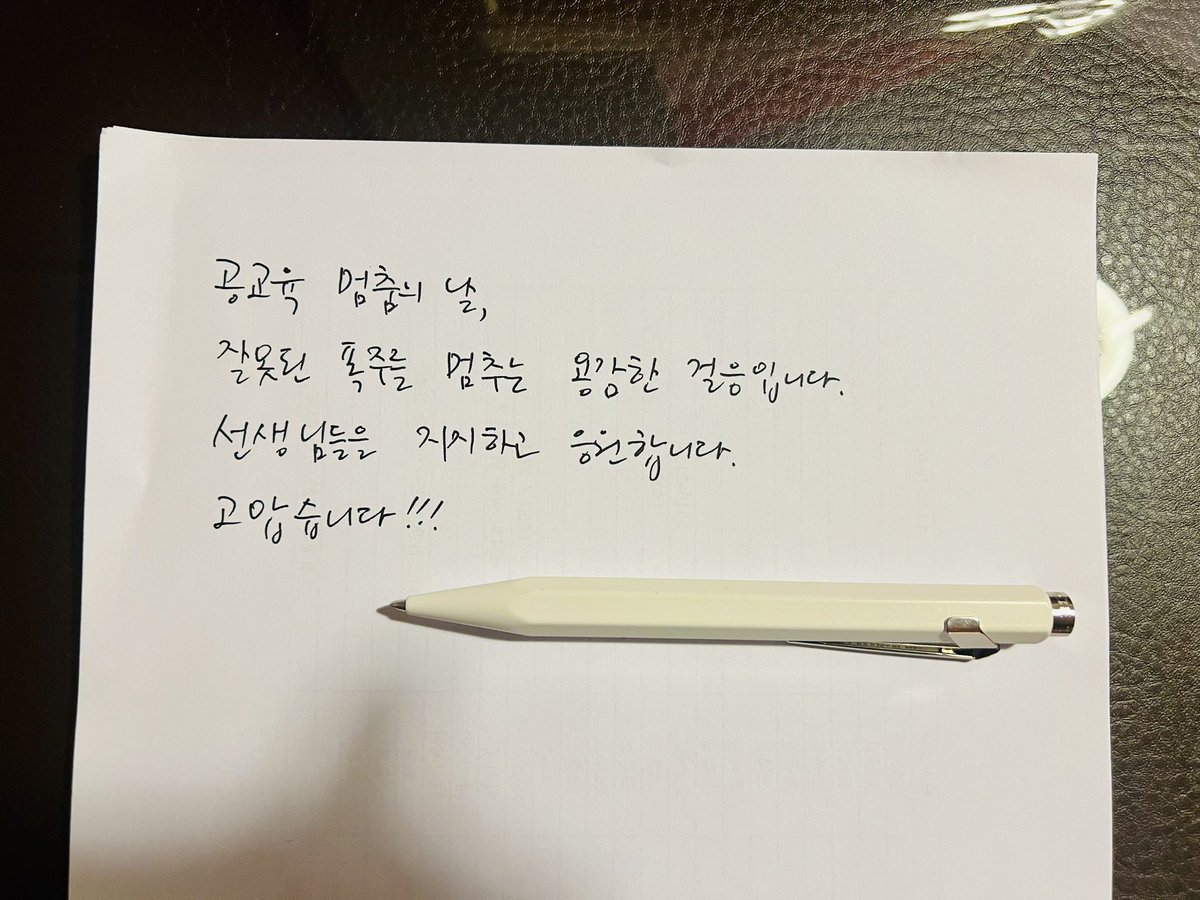 공교육 멈춤의 날,
잘못된 폭주를 멈추는 용감한 걸음입니다.
선생님들을 지지하고 응원합니다.
고맙습니다!!!